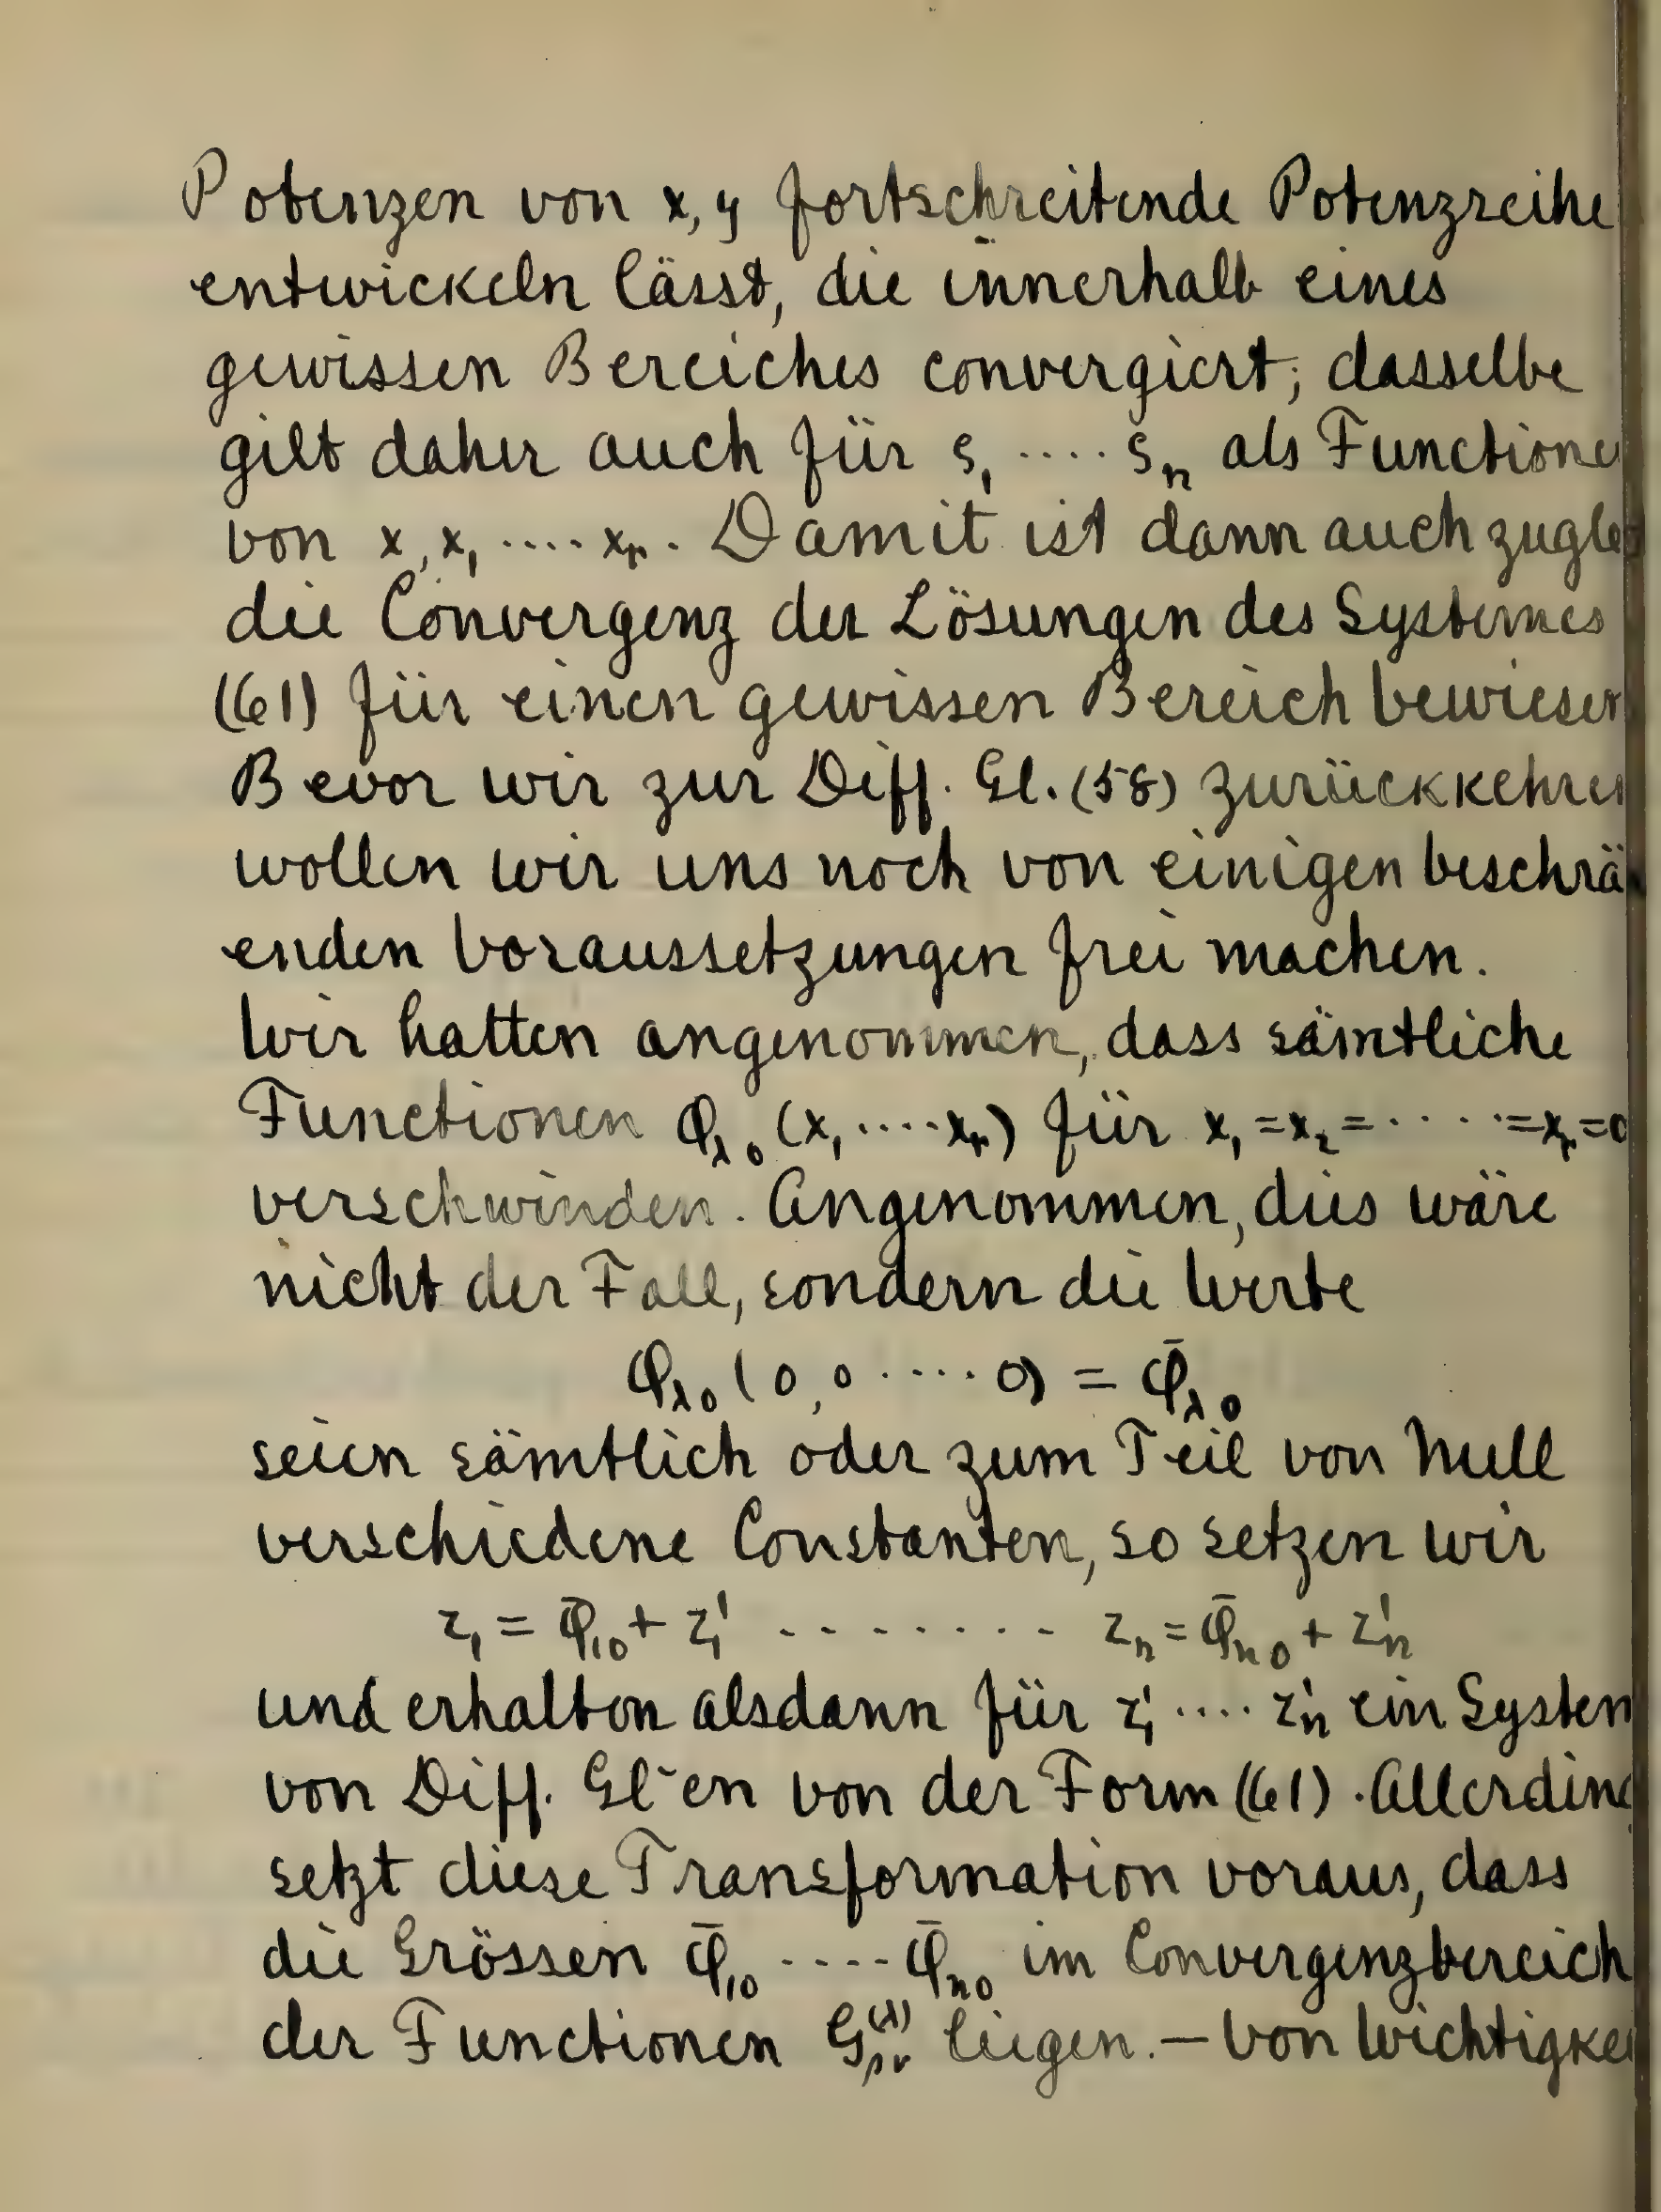 Potenzen von x, y fortschreitende Potenzreihe
entwickeln lässt, die innerhalb eines
gewissen Bereiches convergiert; dasselbe
gilt daher auch für s₁ .... sₙ als Functione
von x, x₁ .... xᵣ. Damit ist dann auch zugle
die Convergenz der Lösungen des Systemes
(61) für einen gewissen Bereich bewiesen
Bevor wir zur Diff. Gl. (58) zurückkehren
wollen wir uns noch von einigen beschrä
enden Voraussetzungen frei machen.
Wir hatten angenommen, dass sämtliche
Functionen φ_λ0 (x₁ .... xᵣ) für x₁ = x₂ = ..... = xᵣ = 0
verschwinden. Angenommen, dies wäre
nicht der Fall, sondern die Werte
φ_λ0 (0,0 .... 0) = φ̄_λ0
seien sämtlich oder zum Teil von Null
verschiedene Constanten, so setzen wir
z₁ = φ̄₁₀ + z₁' - - - - - - - - zₙ = φ̄ₙ₀ + zₙ'
und erhalten alsdann für z₁' .... zₙ' ein System
von Diff. Gl-en von der Form (61). Allerding
setzt diese Transformation voraus, dass
die Grössen φ̄₁₀ ---- φ̄ₙ₀ im Convergenzbereich
der Functionen G_μν^(λ) liegen. — Von Wichtigkei